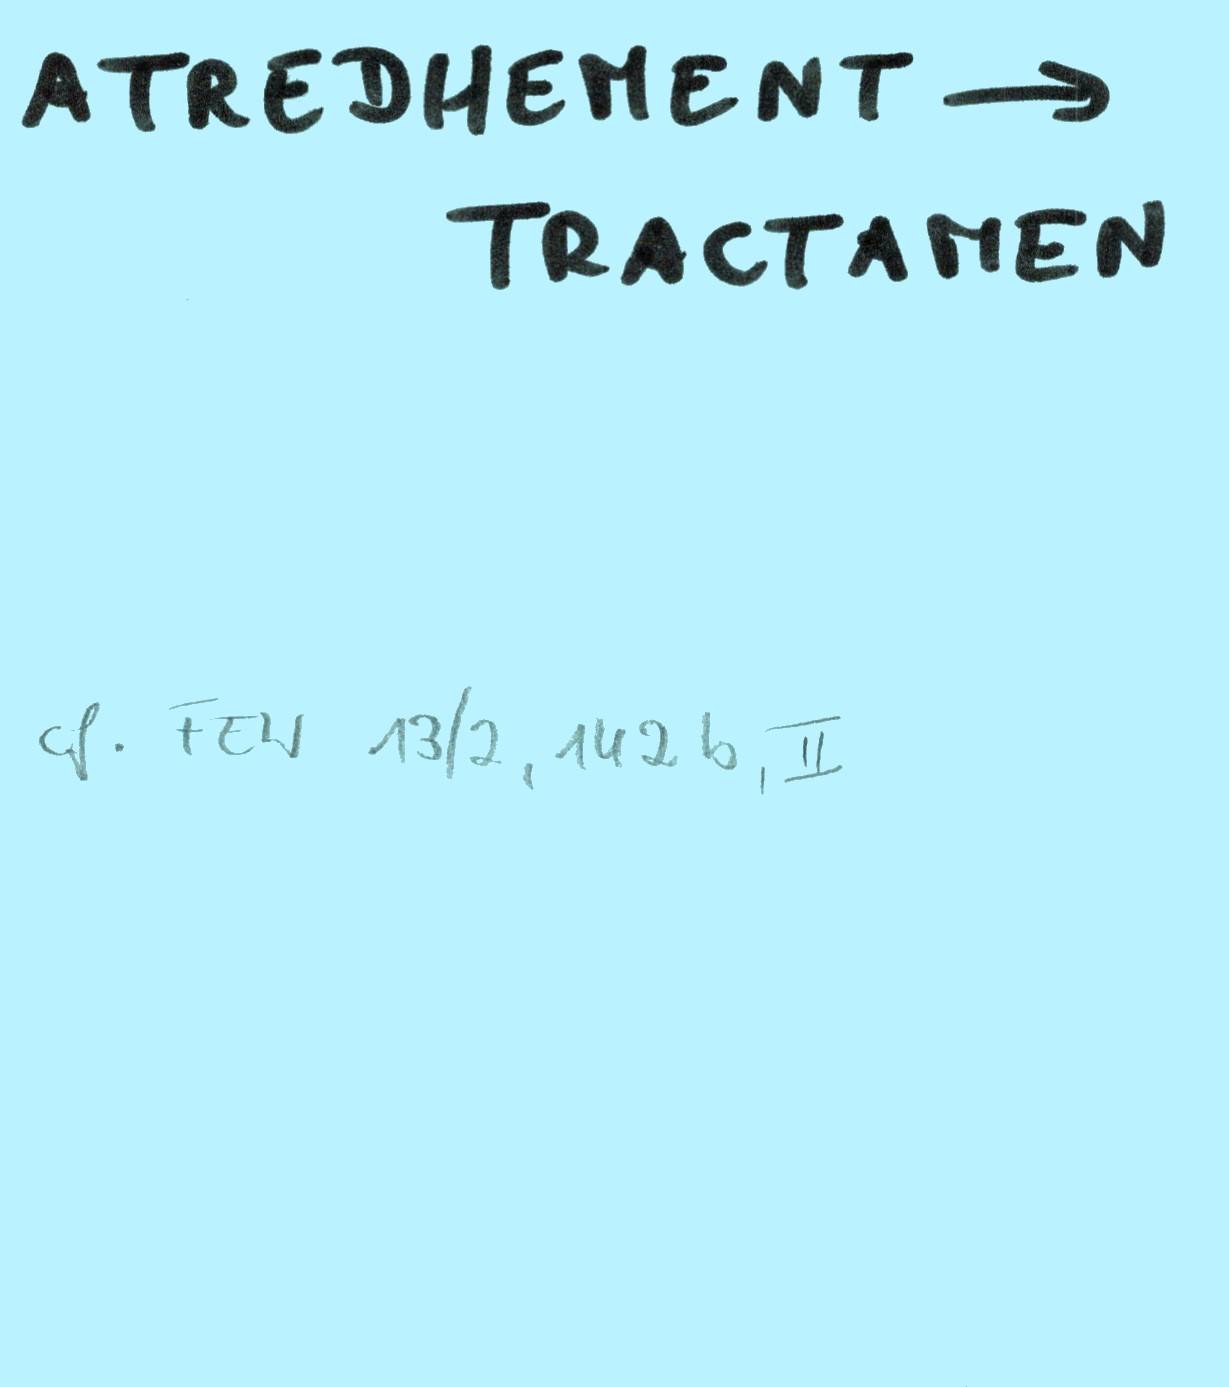 ATREDHEMENT →
TRACTAMEN
cf. FEW 13/2, 142 b, II